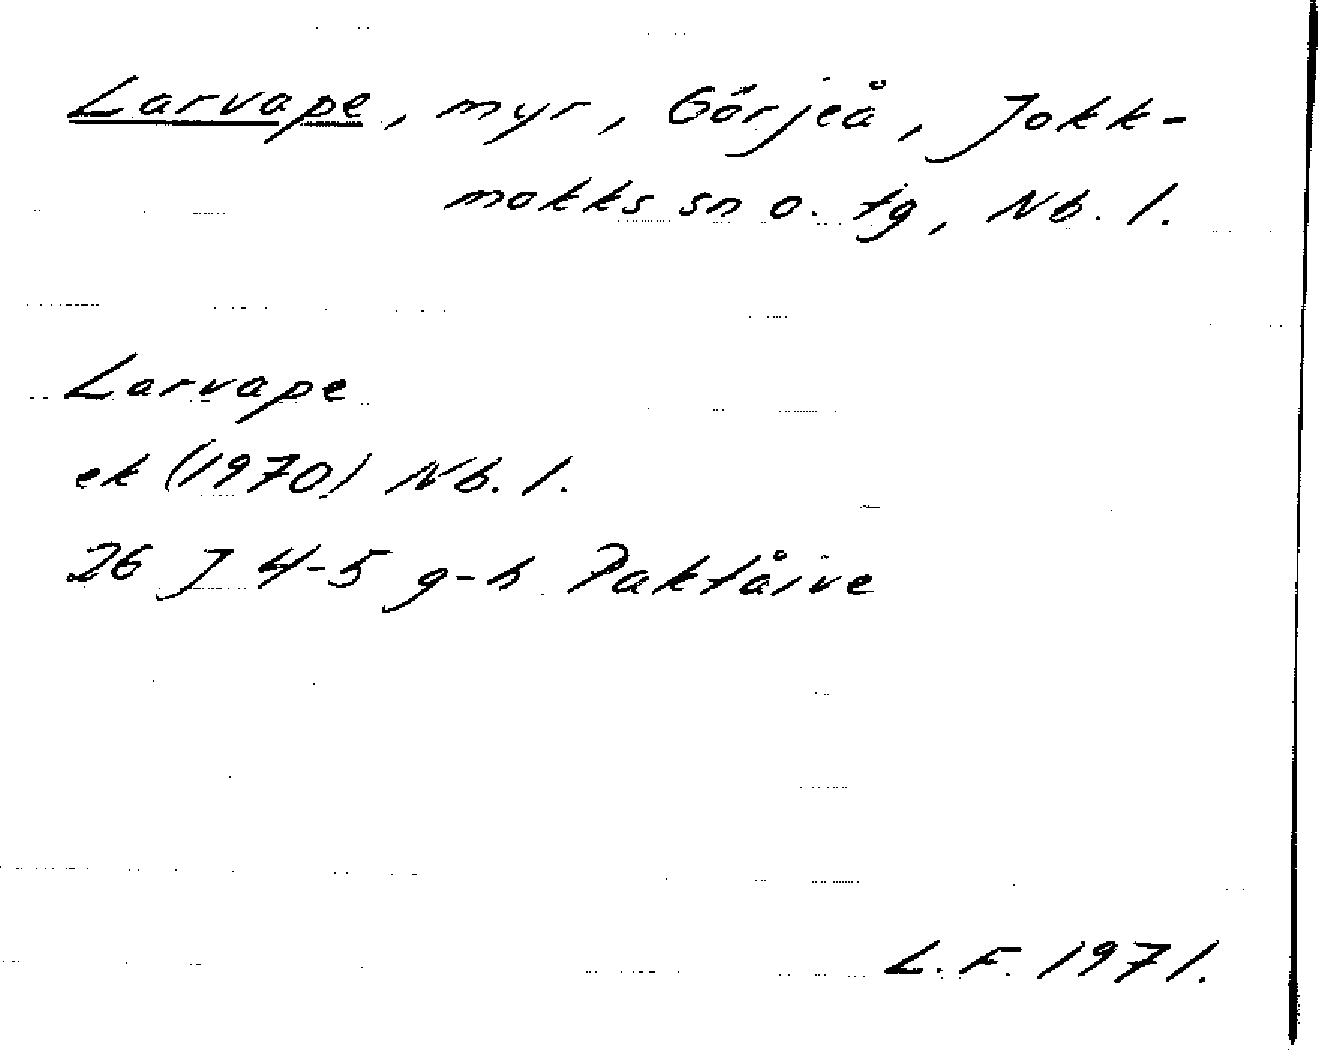 Larvape, myr, Görjeå, Jokk-
mokks sn o. tg, Nb. l.
Larvape
ek (1970) Nb. l.
26 J 4-5 g-h Paktåive
L. F. 1971.